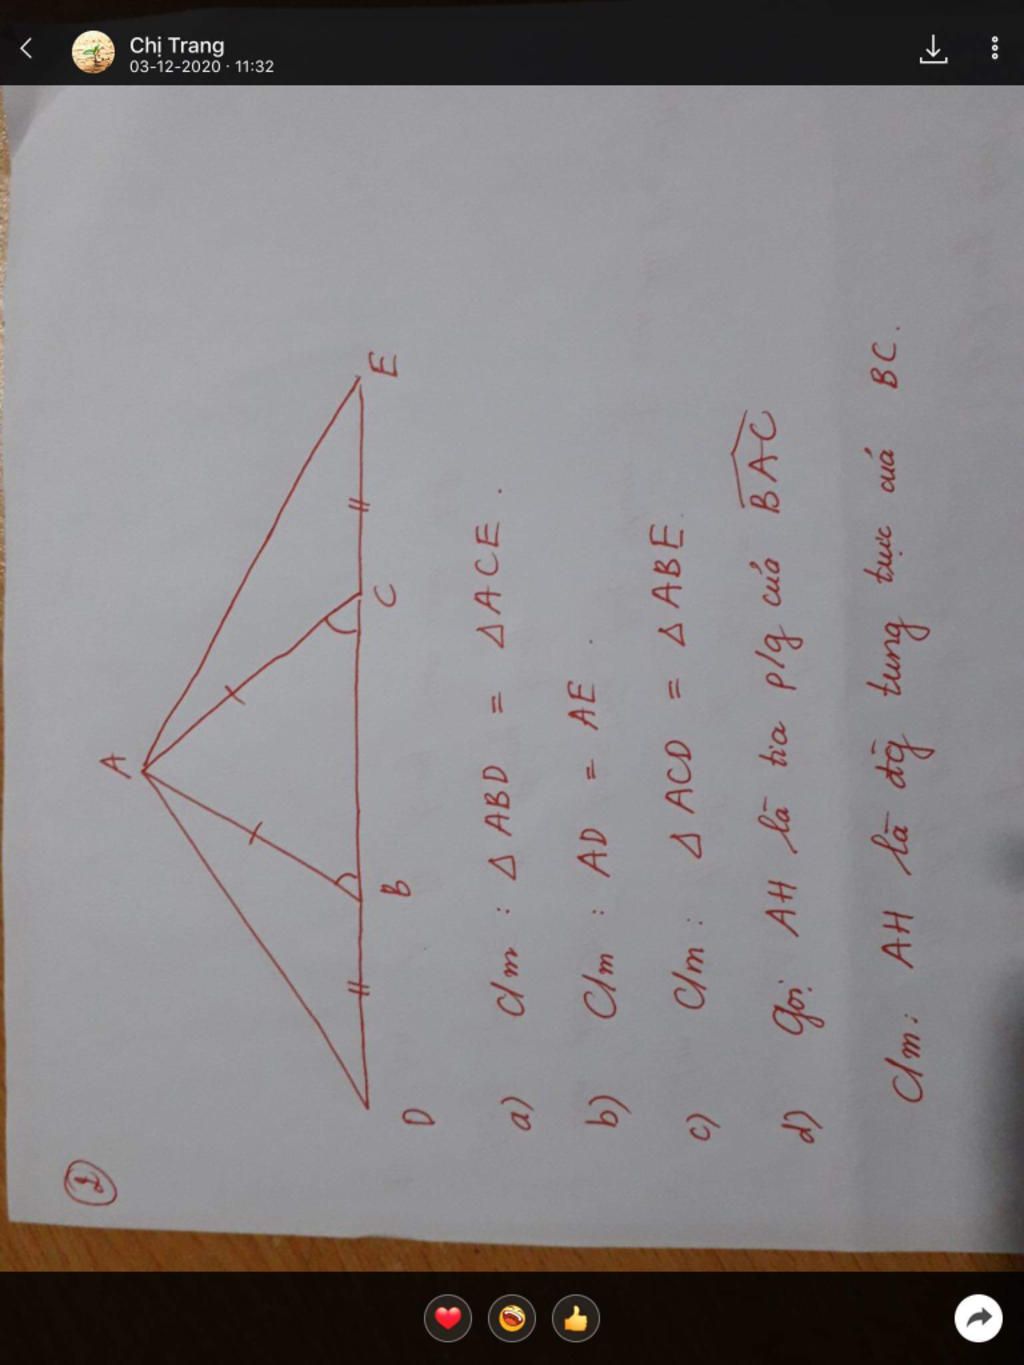 Chị Trang
03-12-2020 · 11:32
A
D
B
C
E
a) C/m : Δ ABD = Δ ACE .
b) C/m : AD = AE .
c) C/m : Δ ACD = Δ ABE.
d) Gọi AH là tia p/g của BAC
C/m : AH là đg̀ tung trực của BC.